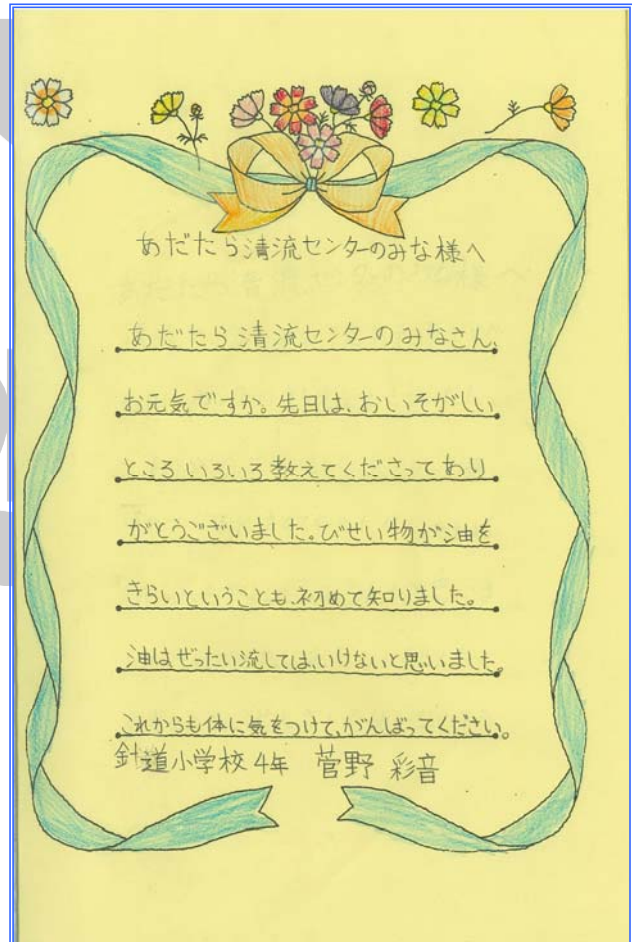 あだたら清流センターのみな様へ
あだたら清流センターのみなさん、
お元気ですか。先日は、おいそがしい
ところ いろいろ教えてくださってあり
がとうございました。びせい物が油を
きらいということも、初めて知りました。
油はぜったい流しては、いけないと思いました。
これからも体に気をつけて、がんばってください。
針道小学校4年 菅野 彩音